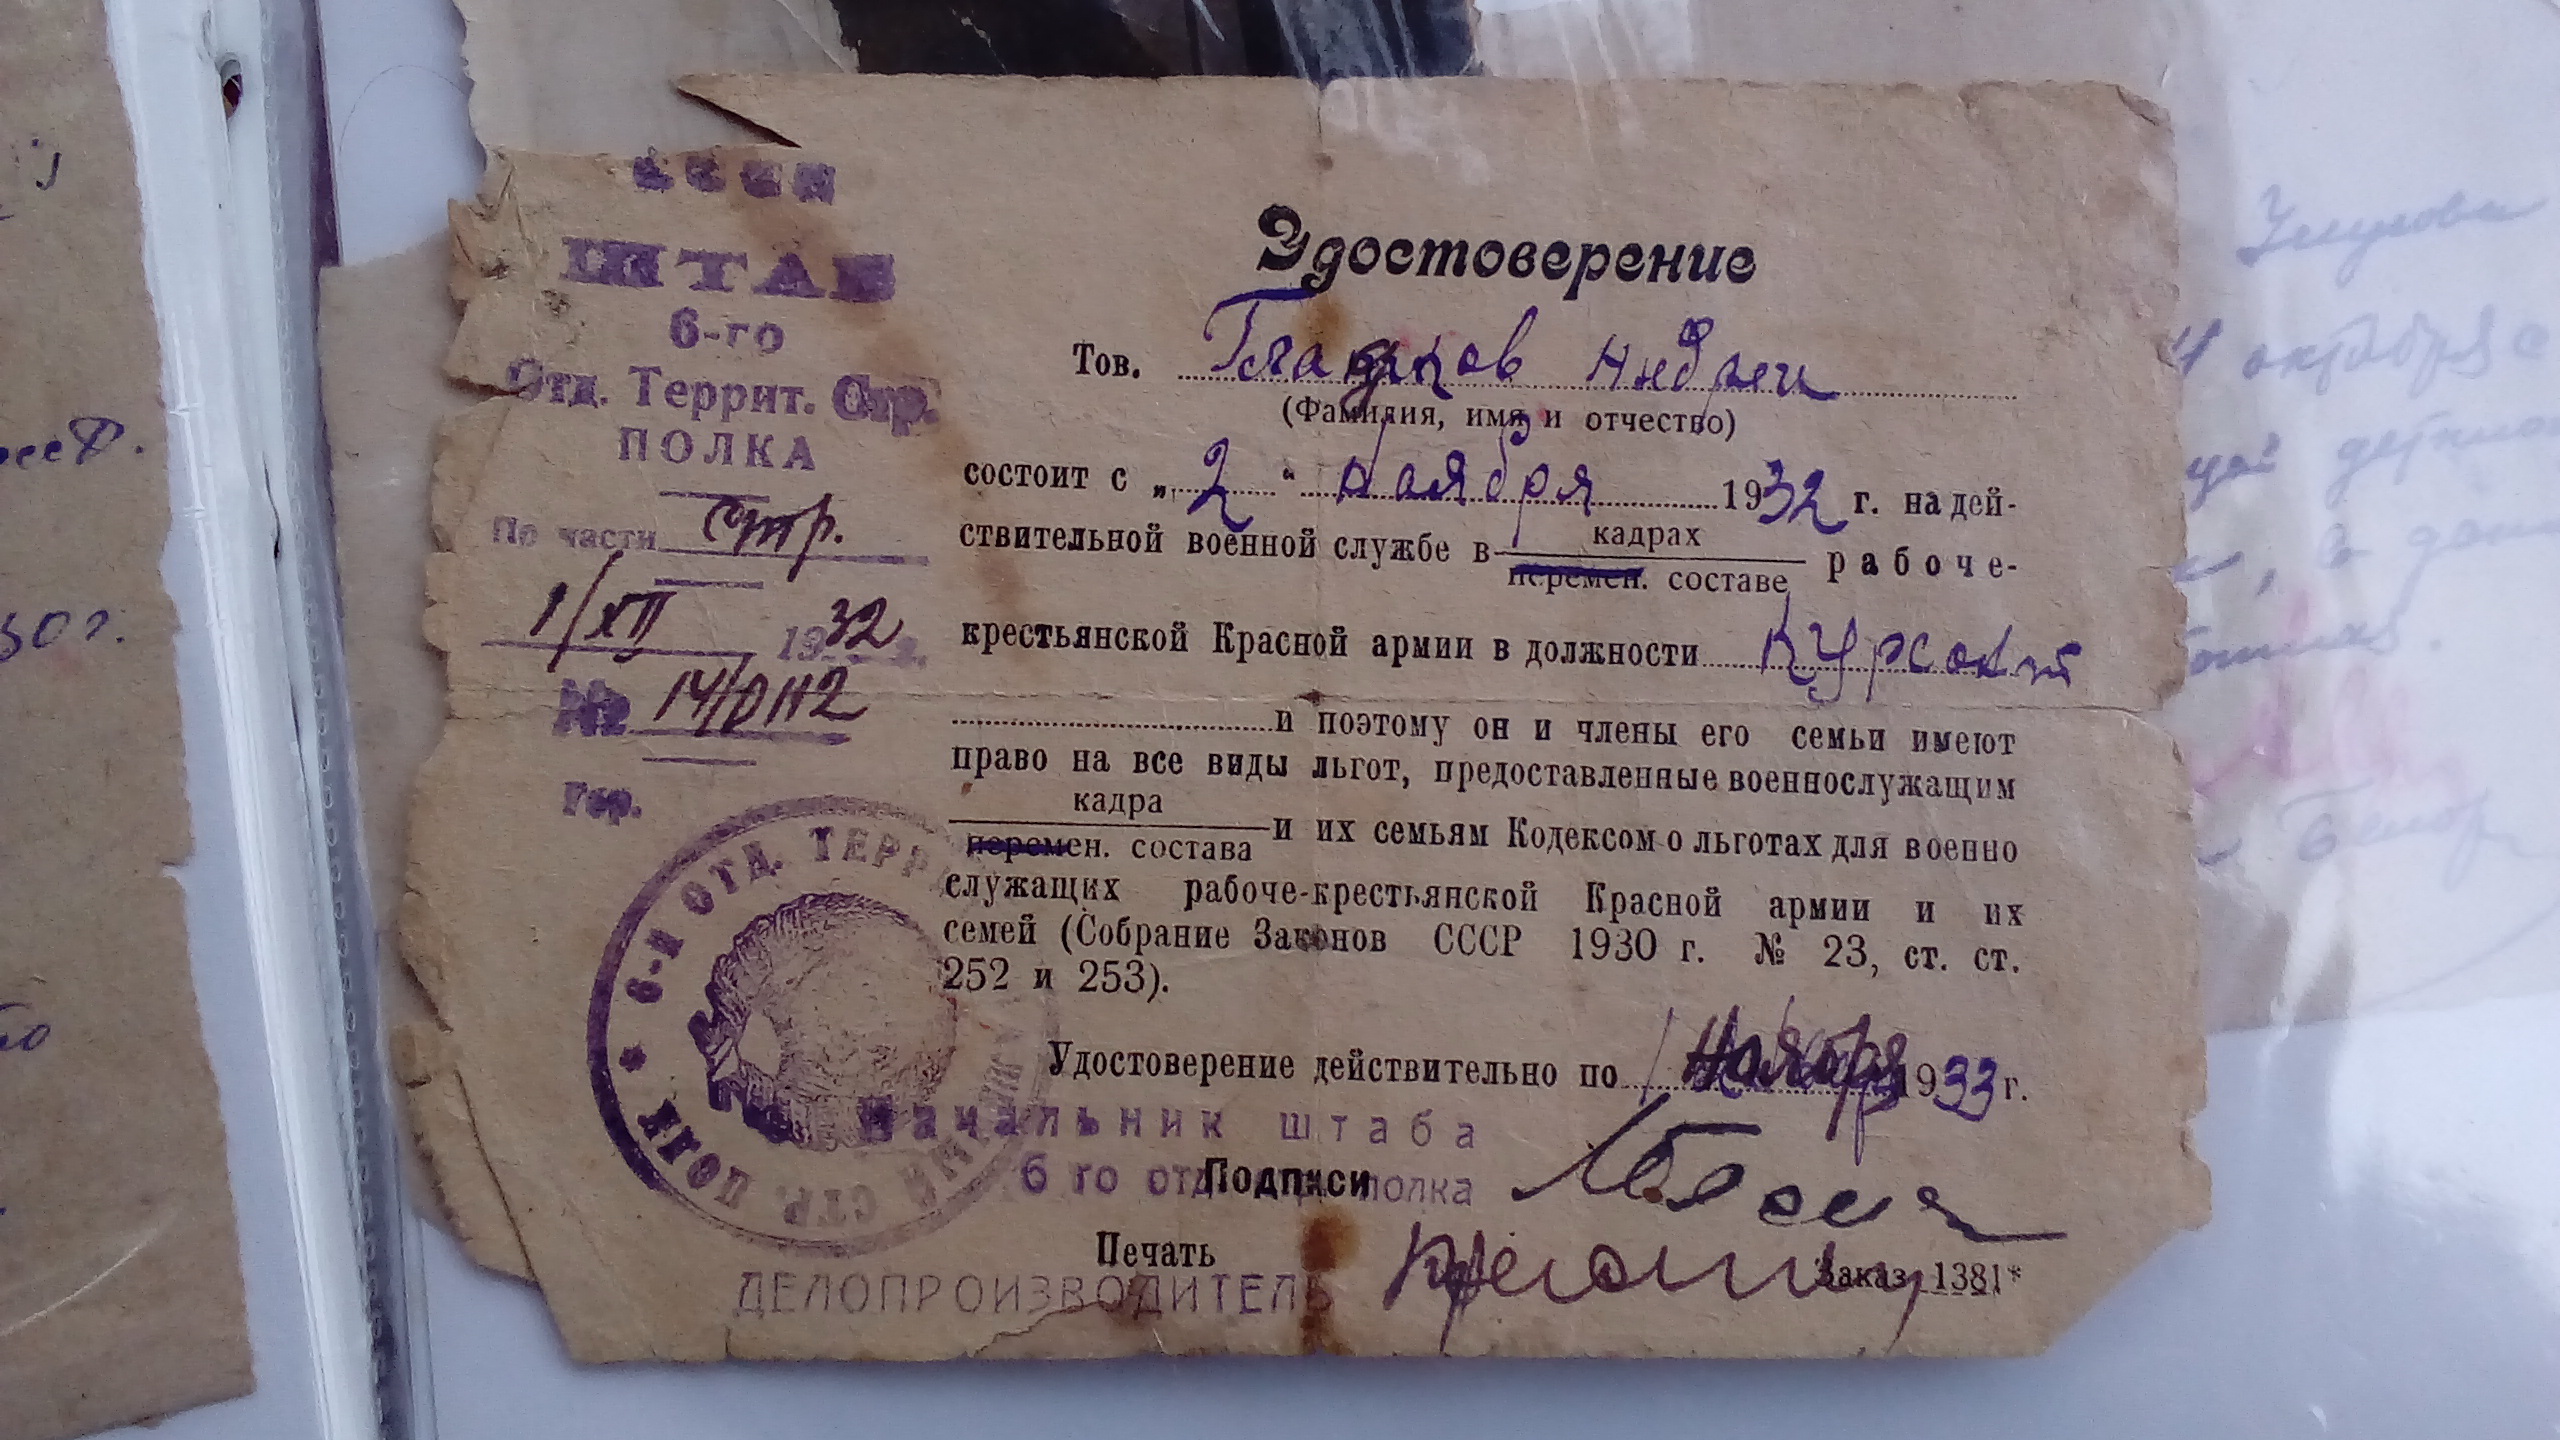 СССР
ШТАБ
6-го
Отд. Террит. Стр.
ПОЛКА
По части стр.
1/XII 1932 г.
№ 14/0112
Гор.
6-Й ОТД. ТЕРР СТР. ПОЛК
Удостоверение
Тов. Гладков Андрей
(Фамилия, имя и отчество)
состоит с „2“ ноября 1932 г. на дей-
ствительной военной службе в кадрах
перемен. составе рабоче-
крестьянской Красной армии в должности курсант
и поэтому он и члены его семьи имеют
право на все виды льгот, предоставленные военнослужащим
кадра
перемен. состава и их семьям Кодексом о льготах для военно
служащих рабоче-крестьянской Красной армии и их
семей (Собрание Законов СССР 1930 г. № 23, ст. ст.
252 и 253).
Удостоверение действительно по 1 Ноября 1933 г.
Начальник штаба
6 го отд полка
Подписи
Печать
ДЕЛОПРОИЗВОДИТЕЛЬ
Заказ 1381*
30 г.
октября